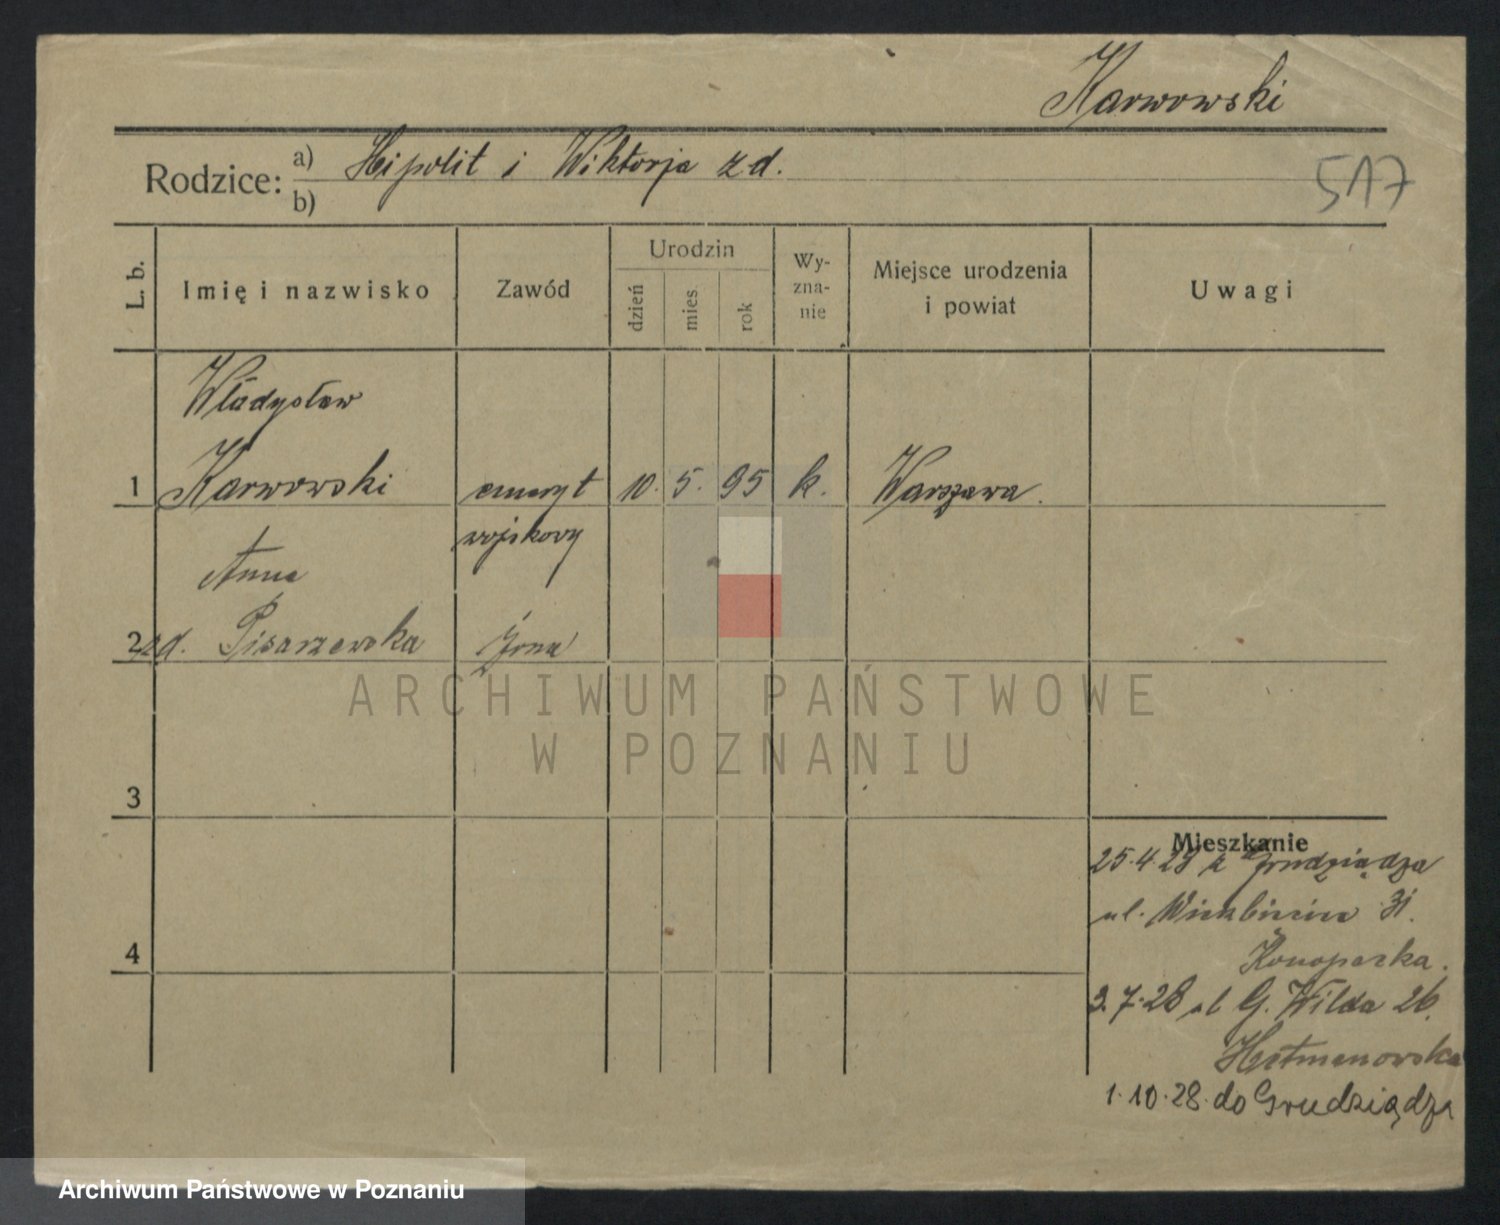 Karwowski
Rodzice: a) Hipolit i Wiktorja z d.
b)
517
L. b.
Imię i nazwisko
Zawód
Urodzin
dzień
mies.
rok
Wy-
zna-
nie
Miejsce urodzenia
i powiat
Uwagi
Władysław
1 Karwowski emeryt 10. 5. 95 k. Warszawa.
wojskowy
Anna
2 zd. Pisarzewska żona
ARCHIWUM PAŃSTWOWE
W POZNANIU
3
Mieszkanie
25.4.28 z Grudziądza
ul. 31.
4
Konoparka.
3.7.28 ul G. Wilda 26.
Hetmanowska
1.10.28. do Grudziądza
Archiwum Państwowe w Poznaniu